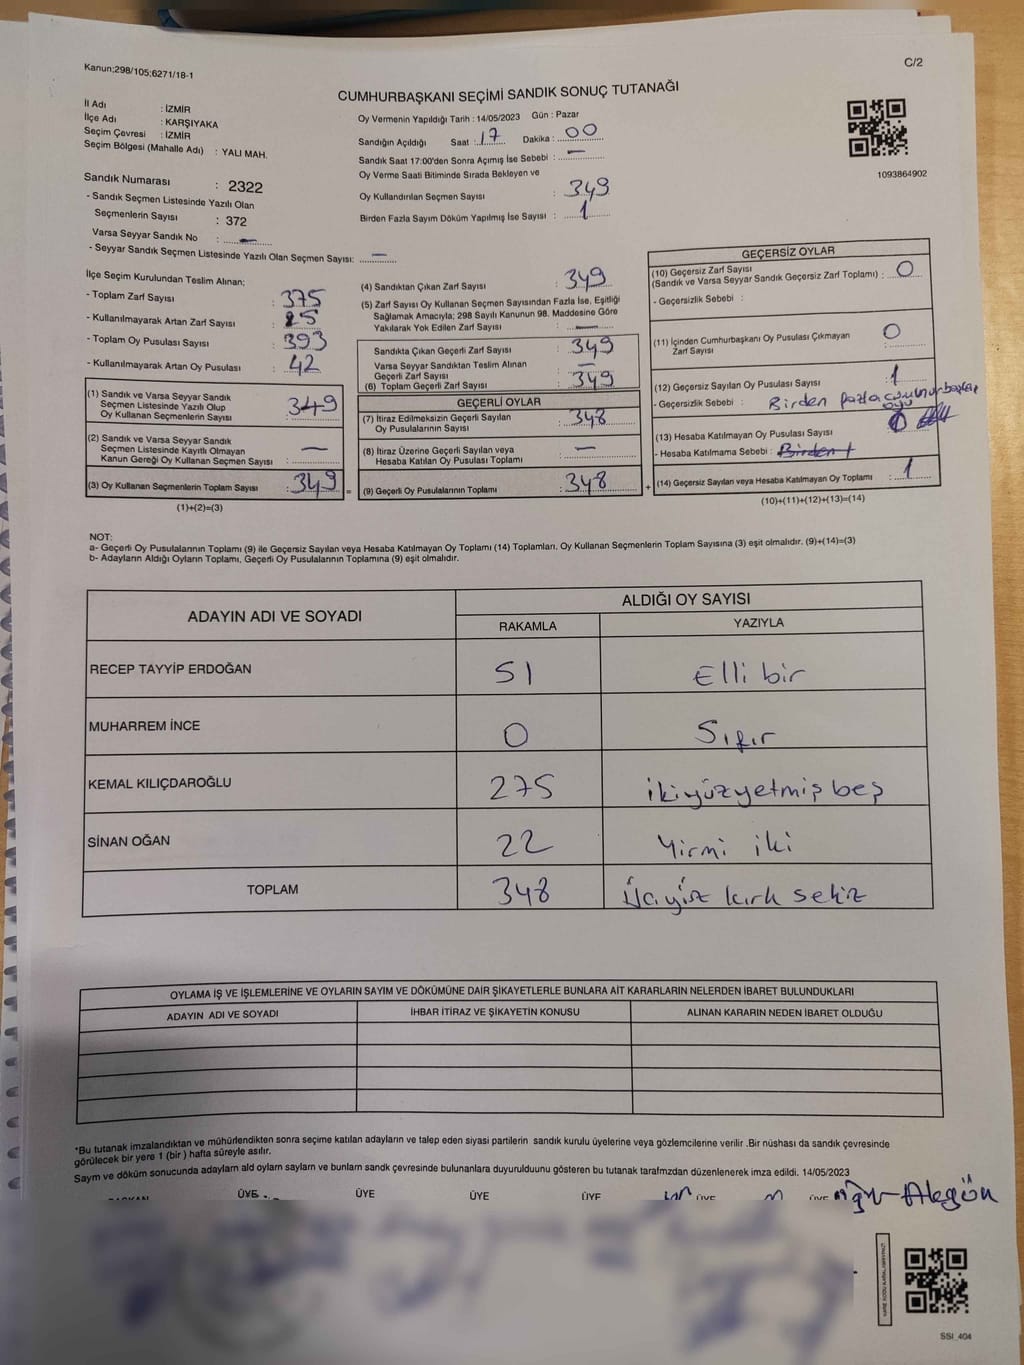 Kanun;298/105;6271/18-1
C/2
CUMHURBAŞKANI SEÇİMİ SANDIK SONUÇ TUTANAĞI
İl Adı : İZMİR
İlçe Adı : KARŞIYAKA
Seçim Çevresi : İZMİR
Seçim Bölgesi (Mahalle Adı) : YALI MAH.
Sandık Numarası : 2322
- Sandık Seçmen Listesinde Yazılı Olan
Seçmenlerin Sayısı : 372
Varsa Seyyar Sandık No : —
- Seyyar Sandık Seçmen Listesinde Yazılı Olan Seçmen Sayısı: —
Oy Vermenin Yapıldığı Tarih : 14/05/2023 Gün : Pazar
Sandığın Açıldığı Saat : 17 Dakika : 00
Sandık Saat 17:00'den Sonra Açımış İse Sebebi : —
Oy Verme Saati Bitiminde Sırada Bekleyen ve
Oy Kullandırılan Seçmen Sayısı : 349
Birden Fazla Sayım Döküm Yapılmış İse Sayısı : 1
1093864902
İlçe Seçim Kurulundan Teslim Alınan;
- Toplam Zarf Sayısı : 375
- Kullanılmayarak Artan Zarf Sayısı : 25
- Toplam Oy Pusulası Sayısı : 393
- Kullanılmayarak Artan Oy Pusulası : 42
(1) Sandık ve Varsa Seyyar Sandık
Seçmen Listesinde Yazılı Olup
Oy Kullanan Seçmenlerin Sayısı : 349
(2) Sandık ve Varsa Seyyar Sandık
Seçmen Listesinde Kayıtlı Olmayan
Kanun Gereği Oy Kullanan Seçmen Sayısı : —
(3) Oy Kullanan Seçmenlerin Toplam Sayısı : 349
(1)+(2)=(3)
(4) Sandıktan Çıkan Zarf Sayısı : 349
(5) Zarf Sayısı Oy Kullanan Seçmen Sayısından Fazla İse, Eşitliği
Sağlamak Amacıyla; 298 Sayılı Kanunun 98. Maddesine Göre
Yakılarak Yok Edilen Zarf Sayısı : —
Sandıkta Çıkan Geçerli Zarf Sayısı : 349
Varsa Seyyar Sandıktan Teslim Alınan
Geçerli Zarf Sayısı : —
(6) Toplam Geçerli Zarf Sayısı : 349
GEÇERLİ OYLAR
(7) İtiraz Edilmeksizin Geçerli Sayılan
Oy Pusulalarının Sayısı : 348
(8) İtiraz Üzerine Geçerli Sayılan veya
Hesaba Katılan Oy Pusulası Toplamı : —
= (9) Geçerli Oy Pusulalarının Toplamı : 348
GEÇERSİZ OYLAR
(10) Geçersiz Zarf Sayısı
(Sandık ve Varsa Seyyar Sandık Geçersiz Zarf Toplamı) : 0
- Geçersizlik Sebebi :
(11) İçinden Cumhurbaşkanı Oy Pusulası Çıkmayan
Zarf Sayısı : 0
(12) Geçersiz Sayılan Oy Pusulası Sayısı : 1
- Geçersizlik Sebebi : Birden fazla cumhurbaşkanı
oyu
(13) Hesaba Katılmayan Oy Pusulası Sayısı
- Hesaba Katılmama Sebebi : Birden f
+ (14) Geçersiz Sayılan veya Hesaba Katılmayan Oy Toplamı : 1
(10)+(11)+(12)+(13)=(14)
NOT:
a- Geçerli Oy Pusulalarının Toplamı (9) ile Geçersiz Sayılan veya Hesaba Katılmayan Oy Toplamı (14) Toplamları, Oy Kullanan Seçmenlerin Toplam Sayısına (3) eşit olmalıdır. (9)+(14)=(3)
b- Adayların Aldığı Oyların Toplamı, Geçerli Oy Pusulalarının Toplamına (9) eşit olmalıdır.
ADAYIN ADI VE SOYADI ALDIĞI OY SAYISI
RAKAMLA YAZIYLA
RECEP TAYYİP ERDOĞAN 51 Elli bir
MUHARREM İNCE 0 Sıfır
KEMAL KILIÇDAROĞLU 275 ikiyüzyetmiş beş
SİNAN OĞAN 22 Yirmi iki
TOPLAM 348 Üçyüz kırk sekiz
OYLAMA İŞ VE İŞLEMLERİNE VE OYLARIN SAYIM VE DÖKÜMÜNE DAİR ŞİKAYETLERLE BUNLARA AİT KARARLARIN NELERDEN İBARET BULUNDUKLARI
ADAYIN ADI VE SOYADI İHBAR İTİRAZ VE ŞİKAYETİN KONUSU ALINAN KARARIN NEDEN İBARET OLDUĞU
*Bu tutanak imzalandıktan ve mühürlendikten sonra seçime katılan adayların ve talep eden siyasi partilerin sandık kurulu üyelerine veya gözlemcilerine verilir .Bir nüshası da sandık çevresinde
görülecek bir yere 1 (bir ) hafta süreyle asılır.
Sayım ve döküm sonucunda adaylarn ald oylarn saylarn ve bunlarn sandk çevresinde bulunanlara duyurulduunu gösteren bu tutanak tarafmzdan düzenlenerek imza edildi. 14/05/2023
ÜYE ÜYE ÜYE ÜYE ÜYE ÜYE Akgün
SSI_404